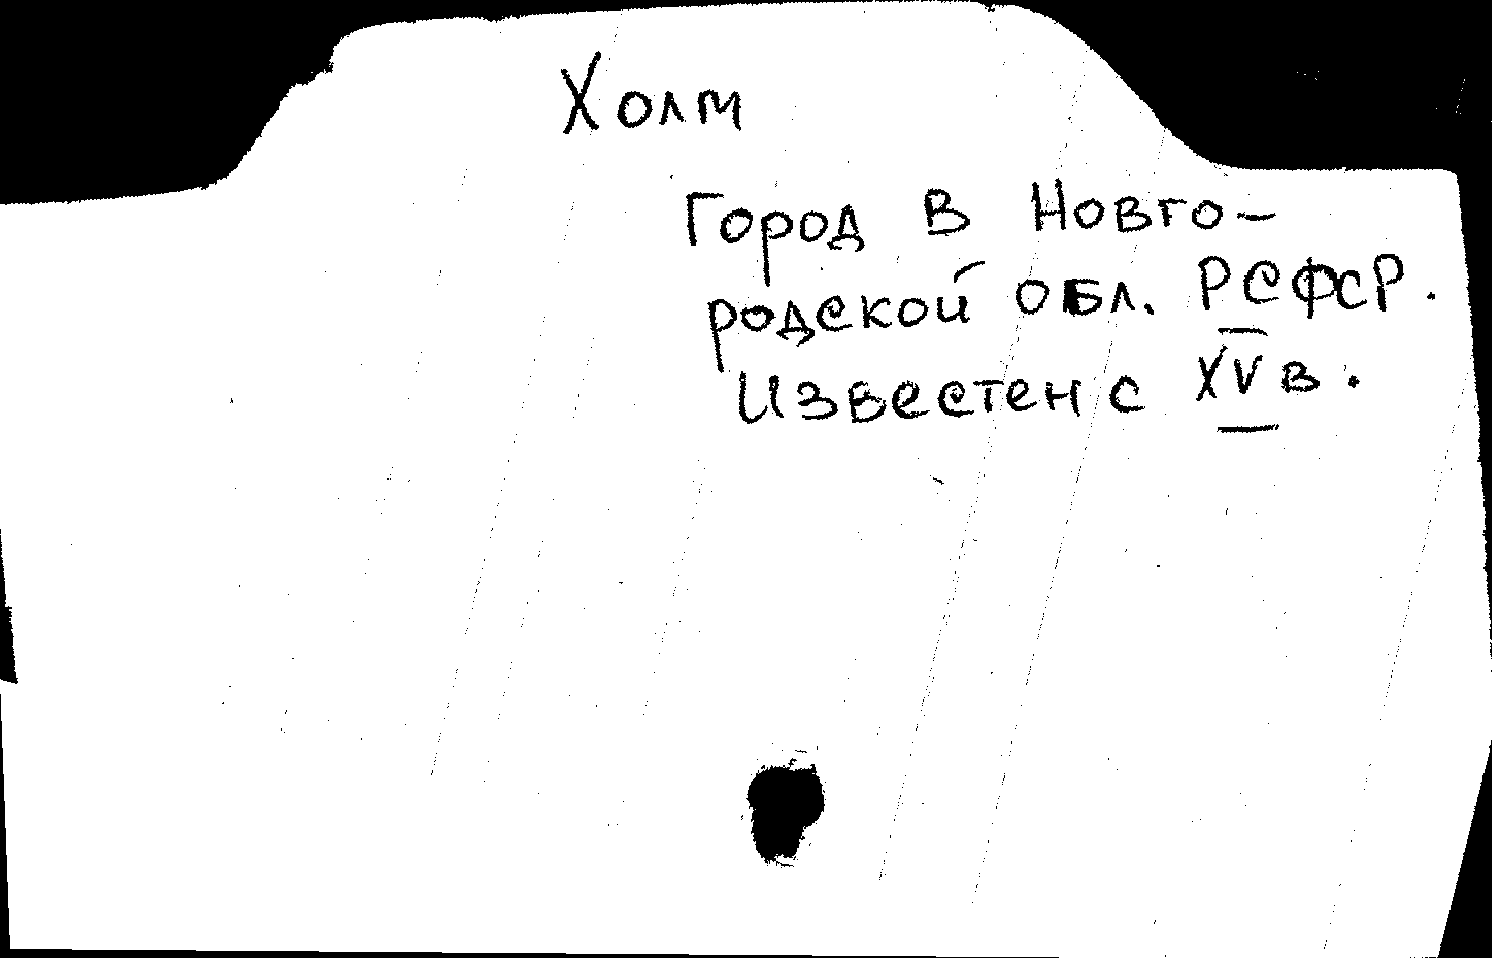 Холм
Город в Новго-
родской обл. РСФСР.
Известен с XV в.